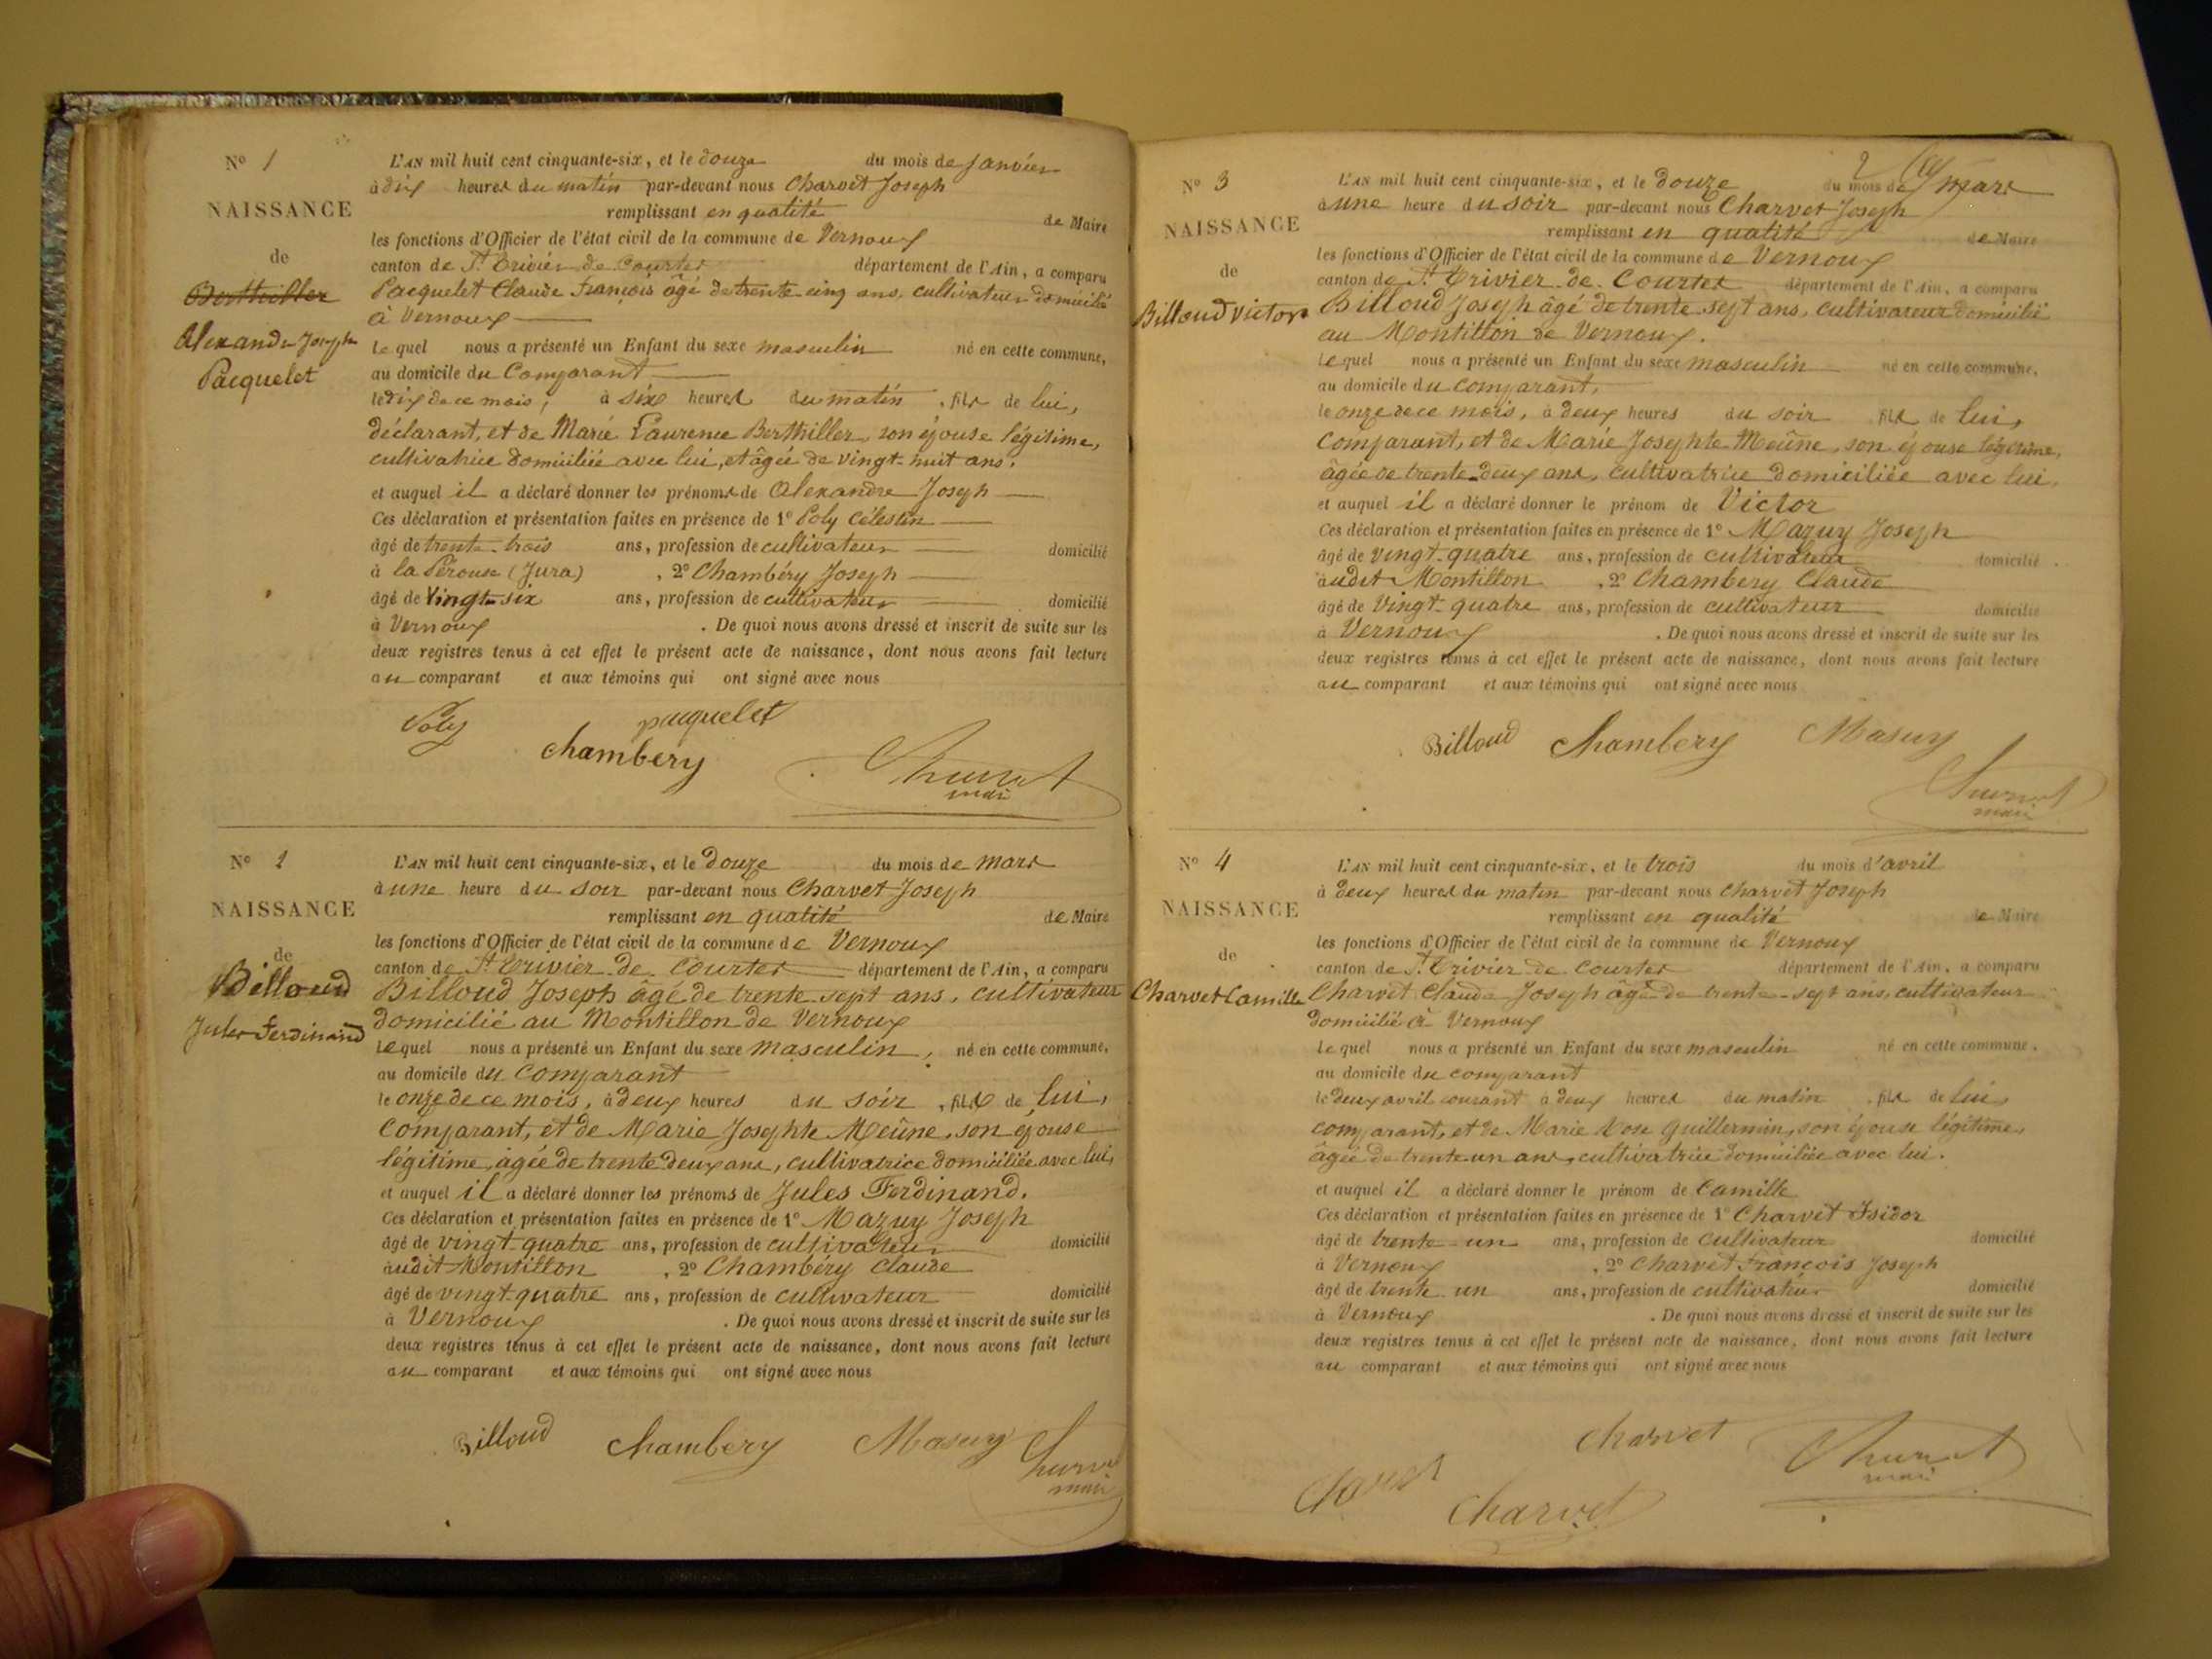 N° 1
NAISSANCE
de
Berthiller
Alexandre Joseph
Pacquelet
L'AN mil huit cent cinquante-six, et le douze du mois de janvier
à dix heures du matin par-devant nous Charvet Joseph
remplissant en qualité de Maire
les fonctions d'Officier de l'état civil de la commune de Vernoux
canton de St Trivier de Courtes département de l'Ain, a comparu
Pacquelet Claude François âgé de trente cinq ans, cultivateur domicilié
à Vernoux
Lequel nous a présenté un Enfant du sexe masculin né en cette commune,
au domicile du Comparant
le dix de ce mois, à six heures du matin, fils de lui,
déclarant, et de Marie Laurence Berthiller, son épouse légitime,
cultivatrice domiciliée avec lui, et âgée de vingt-huit ans.
et auquel il a déclaré donner les prénoms de Alexandre Joseph
Ces déclaration et présentation faites en présence de 1° Poly Célestin
âgé de trente-trois ans, profession de cultivateur domicilié
à la Pérouse (Jura), 2° Chambéry Joseph
âgé de Vingt-six ans, profession de cultivateur domicilié
à Vernoux. De quoi nous avons dressé et inscrit de suite sur les
deux registres tenus à cet effet le présent acte de naissance, dont nous avons fait lecture
au comparant et aux témoins qui ont signé avec nous
Poly pacquelet
chambery
Charvet
maire
N° 2
NAISSANCE
de
Billoud
Jules Ferdinand
L'AN mil huit cent cinquante-six, et le douze du mois de mars
à une heure du soir par-devant nous Charvet Joseph
remplissant en qualité de Maire
les fonctions d'Officier de l'état civil de la commune de Vernoux
canton de St Trivier de Courtes département de l'Ain, a comparu
Billoud Joseph âgé de trente sept ans, cultivateur
domicilié au Montillon de Vernoux
Lequel nous a présenté un Enfant du sexe masculin, né en cette commune,
au domicile du Comparant
le onze de ce mois, à deux heures du soir, fils de lui,
comparant, et de Marie Josephte Meûne, son épouse
légitime, âgée de trente deux ans, cultivatrice domiciliée avec lui,
et auquel il a déclaré donner les prénoms de Jules Ferdinand.
Ces déclaration et présentation faites en présence de 1° Mazuy Joseph
âgé de vingt-quatre ans, profession de cultivateur domicilié
audit Montillon, 2° Chambéry Claude
âgé de vingt-quatre ans, profession de cultivateur domicilié
à Vernoux. De quoi nous avons dressé et inscrit de suite sur les
deux registres tenus à cet effet le présent acte de naissance, dont nous avons fait lecture
au comparant et aux témoins qui ont signé avec nous
Billoud Chambery Masuy Charvet
maire
2
N° 3
NAISSANCE
de
Billoud Victor
L'AN mil huit cent cinquante-six, et le douze du mois de mars
à une heure du soir par-devant nous Charvet Joseph
remplissant en qualité de Maire
les fonctions d'Officier de l'état civil de la commune de Vernoux
canton de St Trivier de Courtes département de l'Ain, a comparu
Billoud Joseph âgé de trente sept ans, cultivateur domicilié
au Montillon de Vernoux.
Lequel nous a présenté un Enfant du sexe masculin né en cette commune,
au domicile du comparant,
le onze de ce mois, à deux heures du soir fils de lui,
comparant, et de Marie Josephte Meûne, son épouse légitime,
âgée de trente-deux ans, cultivatrice domiciliée avec lui,
et auquel il a déclaré donner le prénom de Victor
Ces déclaration et présentation faites en présence de 1° Mazuy Joseph
âgé de vingt-quatre ans, profession de cultivateur domicilié
audit Montillon, 2° Chambery Claude
âgé de Vingt-quatre ans, profession de cultivateur domicilié
à Vernoux. De quoi nous avons dressé et inscrit de suite sur les
deux registres tenus à cet effet le présent acte de naissance, dont nous avons fait lecture
au comparant et aux témoins qui ont signé avec nous
Billoud Chambery Masuy
Charvet
maire
N° 4
NAISSANCE
de
Charvet Camille
L'AN mil huit cent cinquante-six, et le trois du mois d'avril
à deux heures du matin par-devant nous Charvet Joseph
remplissant en qualité de Maire
les fonctions d'Officier de l'état civil de la commune de Vernoux
canton de St Trivier de Courtes département de l'Ain, a comparu
Charvet Claude Joseph âgé de trente-sept ans, cultivateur
domicilié à Vernoux
Lequel nous a présenté un Enfant du sexe masculin né en cette commune,
au domicile du comparant
le deux avril courant à deux heures du matin, fils de lui,
comparant, et de Marie Rose Guillermin, son épouse légitime,
âgée de trente un ans, cultivatrice domiciliée avec lui.
et auquel il a déclaré donner le prénom de Camille
Ces déclaration et présentation faites en présence de 1° Charvet Isidor
âgé de trente-un ans, profession de cultivateur domicilié
à Vernoux, 2° Charvet François Joseph
âgé de trente-un ans, profession de cultivateur domicilié
à Vernoux. De quoi nous avons dressé et inscrit de suite sur les
deux registres tenus à cet effet le présent acte de naissance, dont nous avons fait lecture
au comparant et aux témoins qui ont signé avec nous
charvet Charvet
maire
Charvet